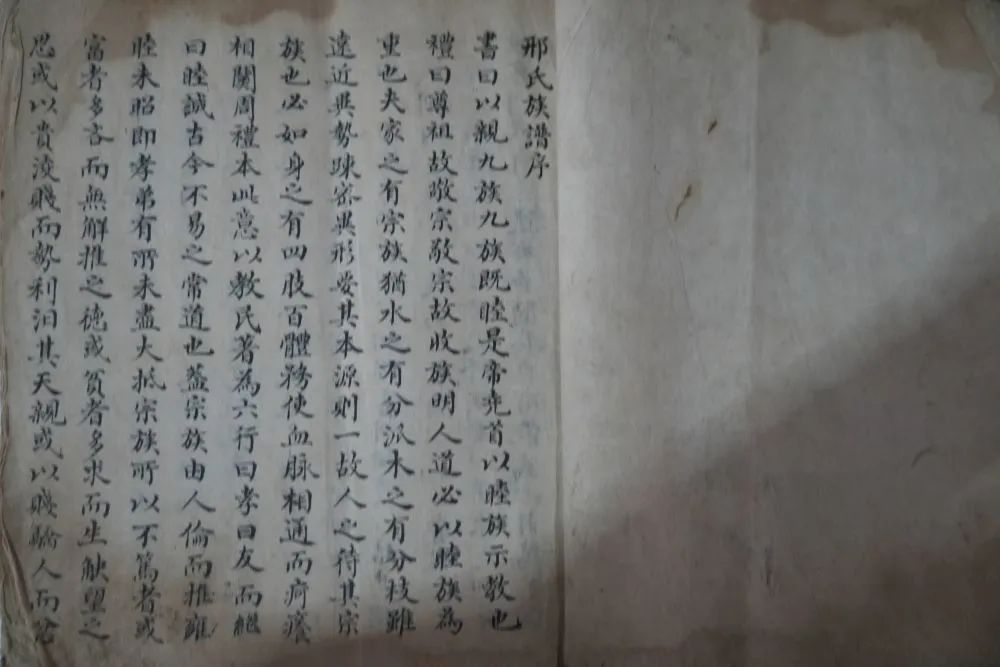 邢氏族譜序
書曰以親九族九族既睦是帝堯首以睦族示教也
禮曰尊祖故敬宗敬宗故收族明人道必以睦族為
重也夫家之有宗族猶水之有分派木之有分枝雖
遠近異勢踈宻異形要其本源則一故人之待其宗
族也必如身之有四肢百體務使血脉相通而疴癢
相關周禮本此意以教民著為六行曰孝曰友而繼
曰睦誠古今不易之常道也蓋宗族由人倫而推雍
睦未昭即孝弟有所未盡大抵宗族所以不篤者或
富者多吝而無解推之徳或貧者多求而生觖望之
思或以貴凌賤而勢利汨其天親或以賤驕人而忿